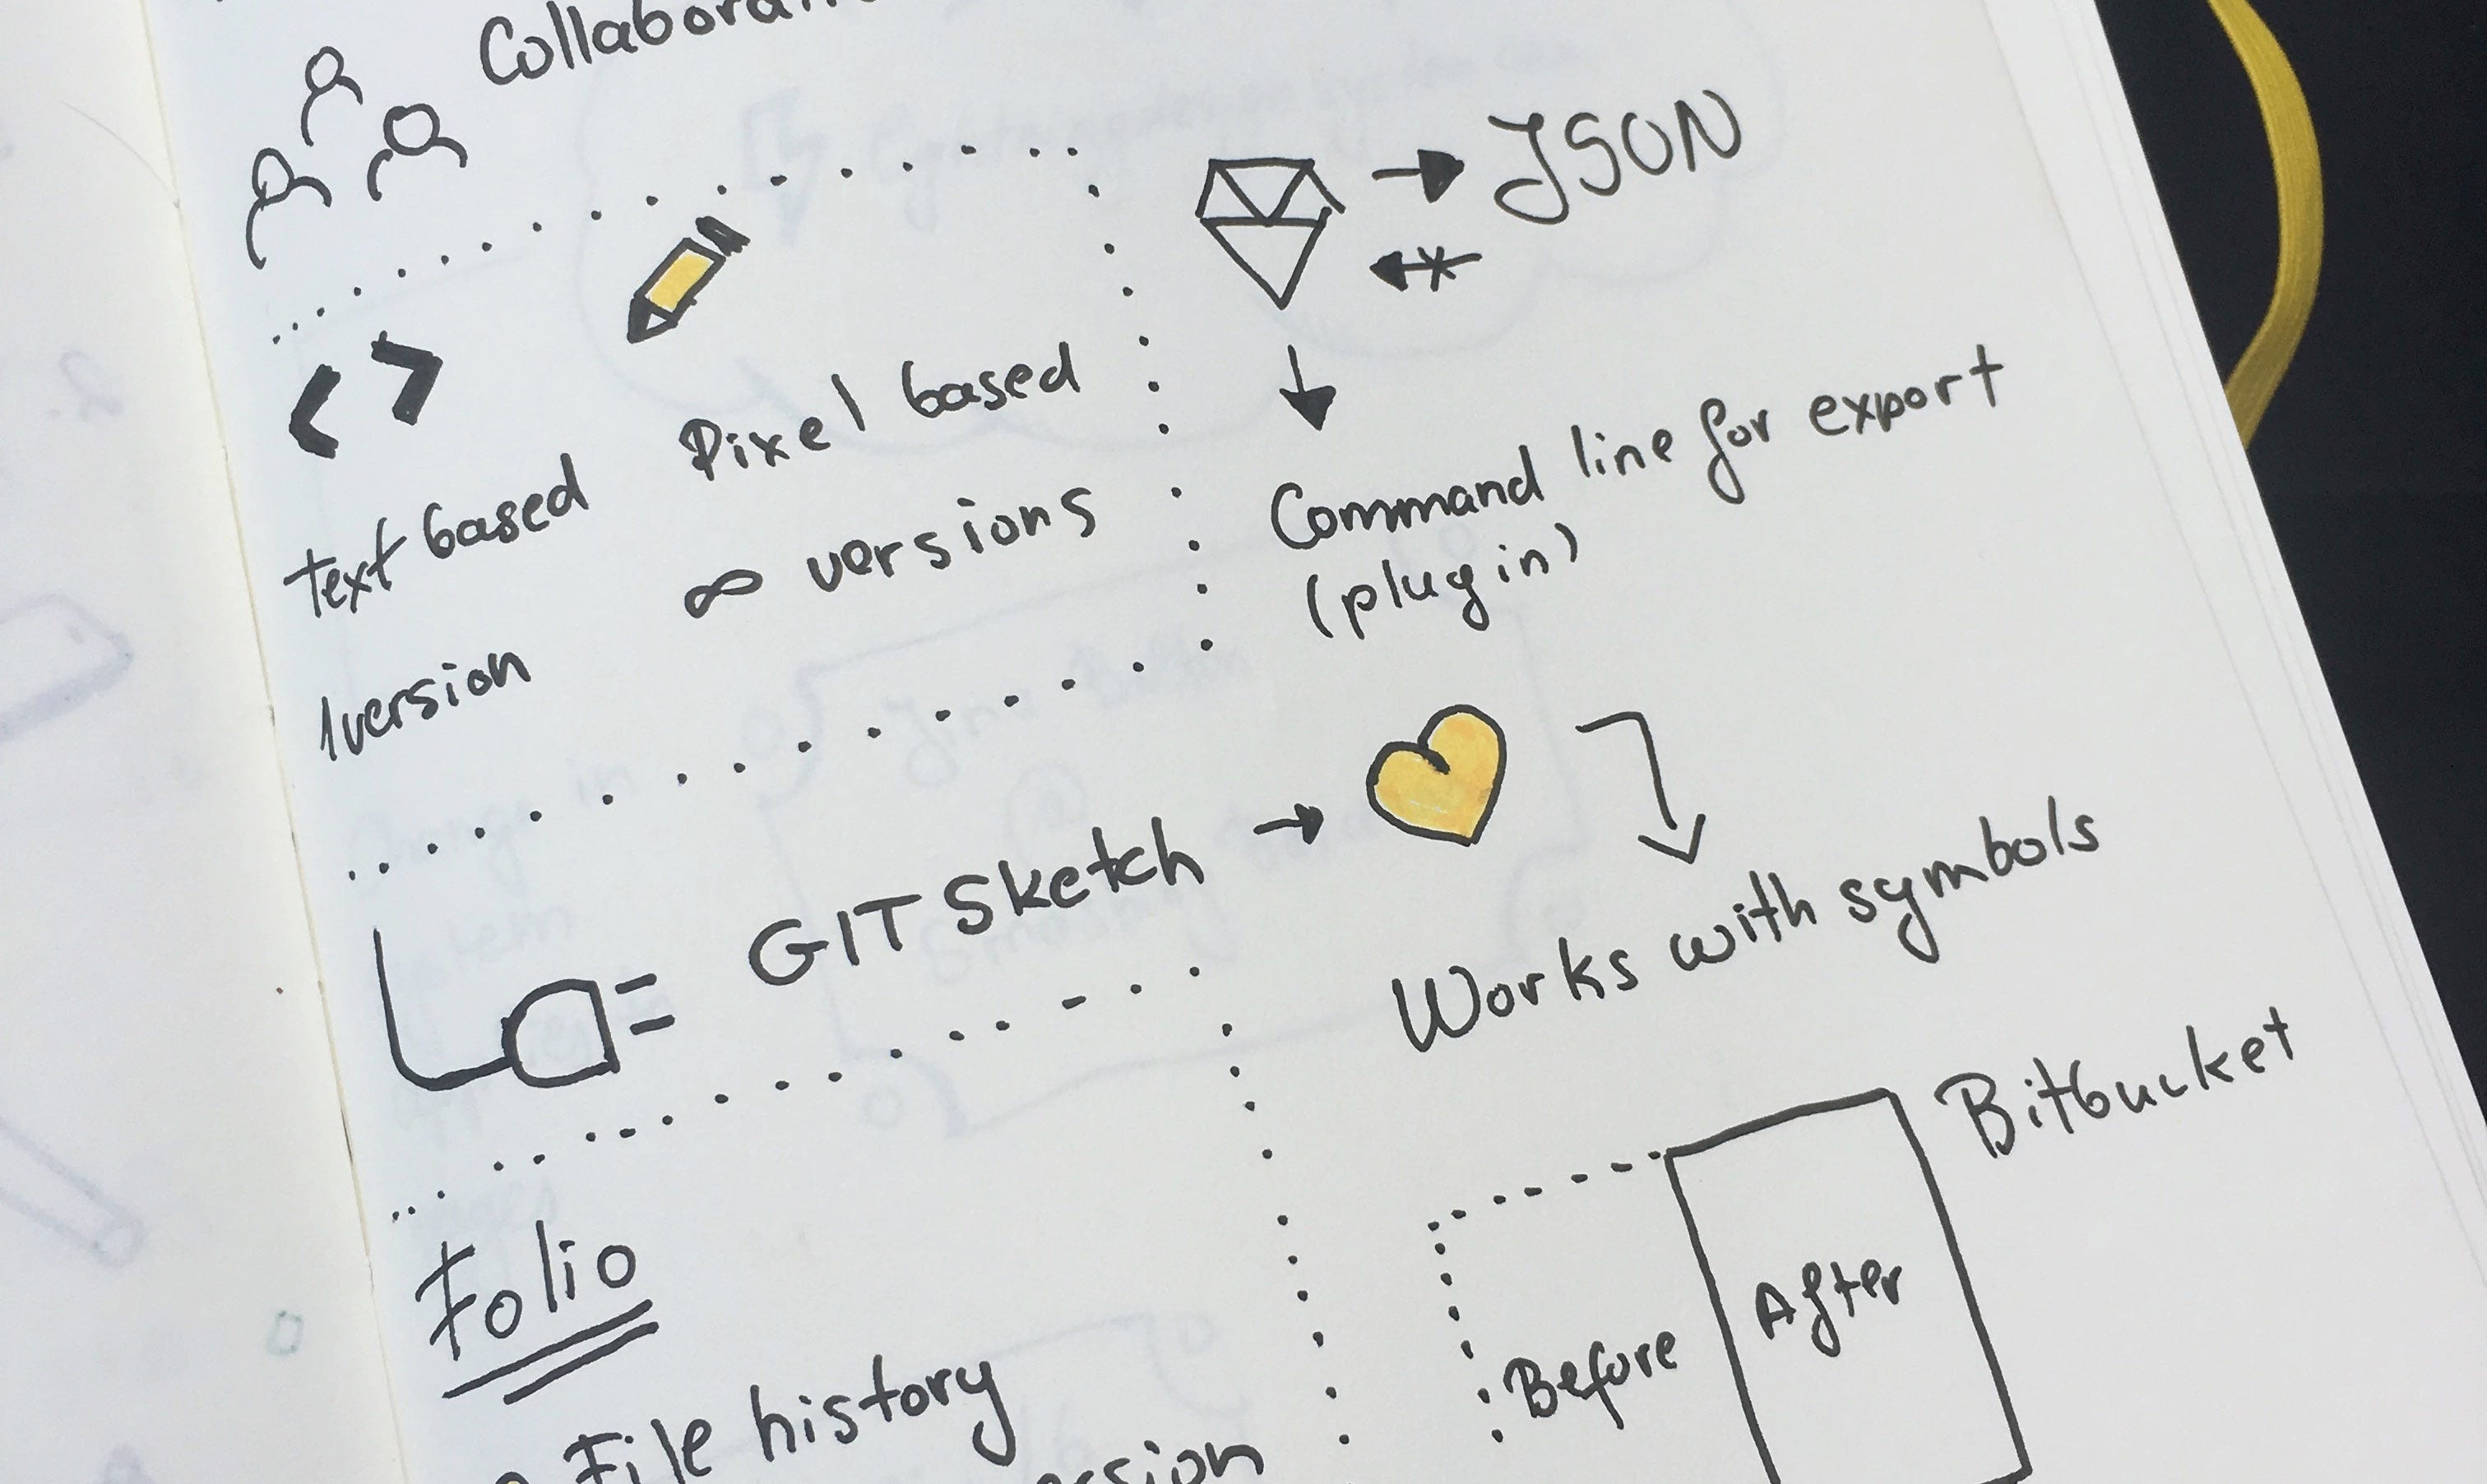 JSON
Text based
Pixel based
1version
∞ versions
Command line for export
(plugin)
GIT Sketch
Works with symbols
Bitbucket
Before
After
Folio
File history